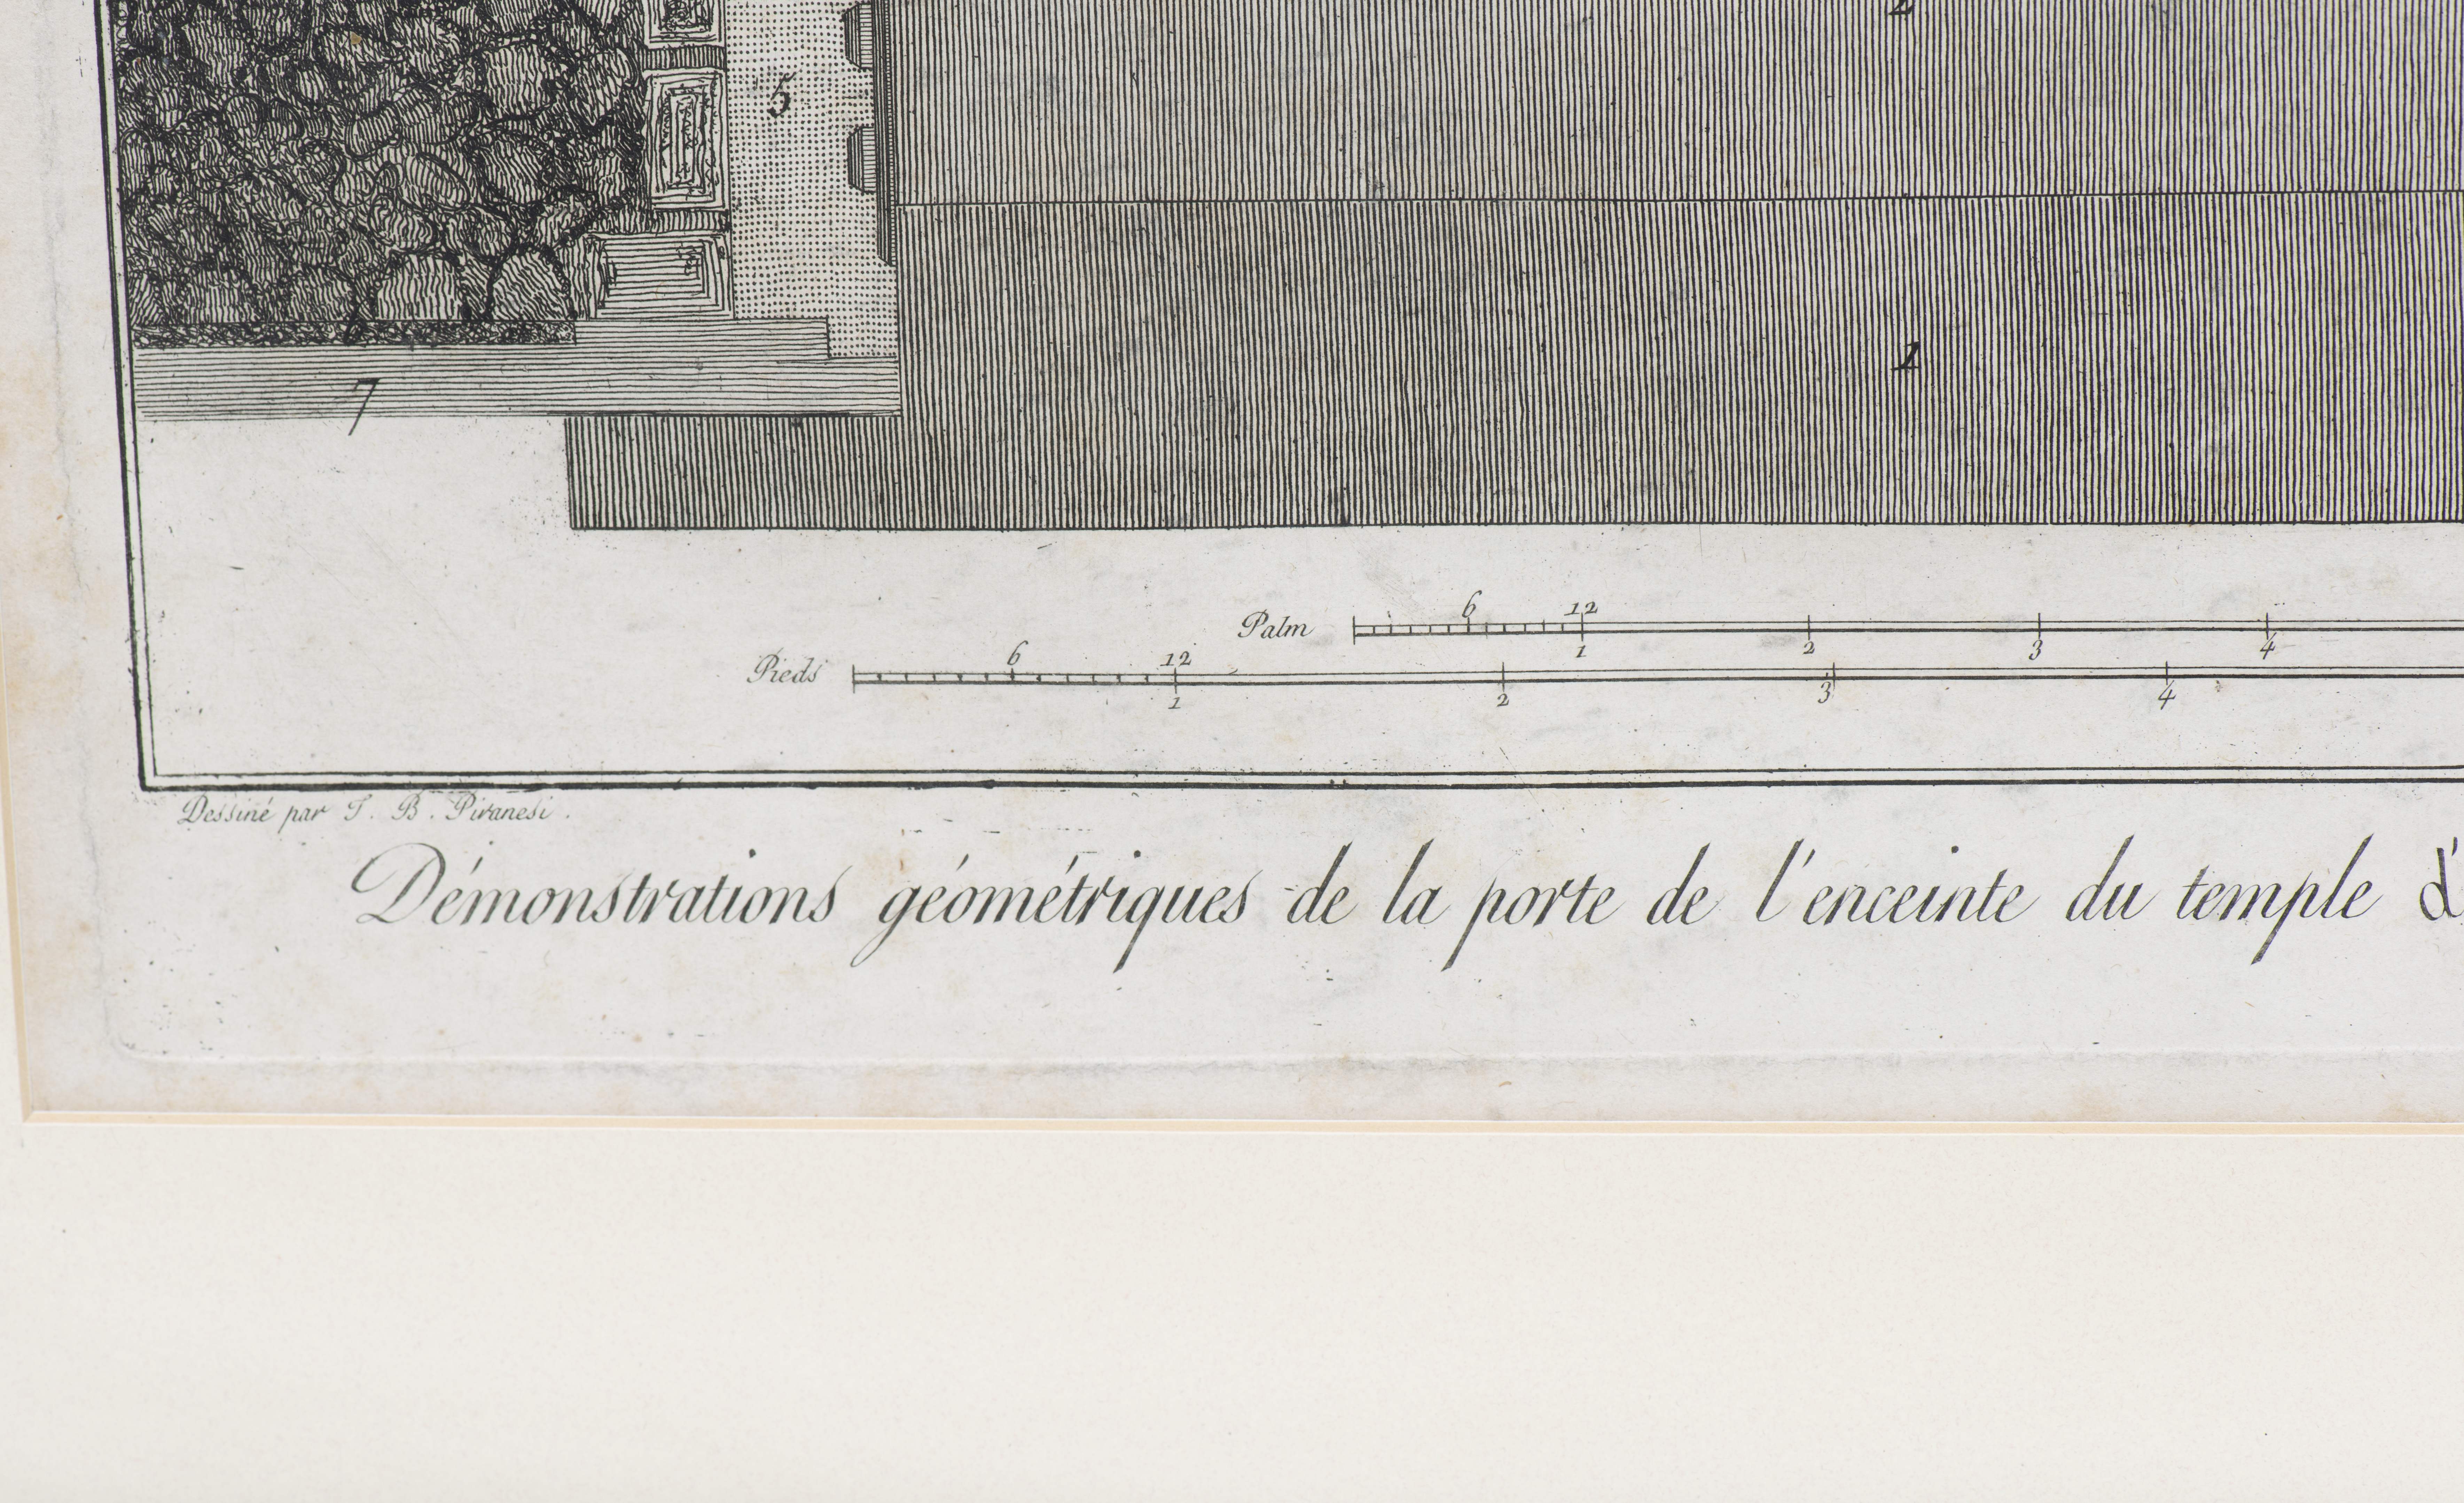 2
5
1
6
7
Palm 6 12
1 2 3 4
Pieds 6 12
1 2 3 4
Dessiné par J. B. Piranesi.
Démonstrations géométriques de la porte de l'enceinte du temple d'